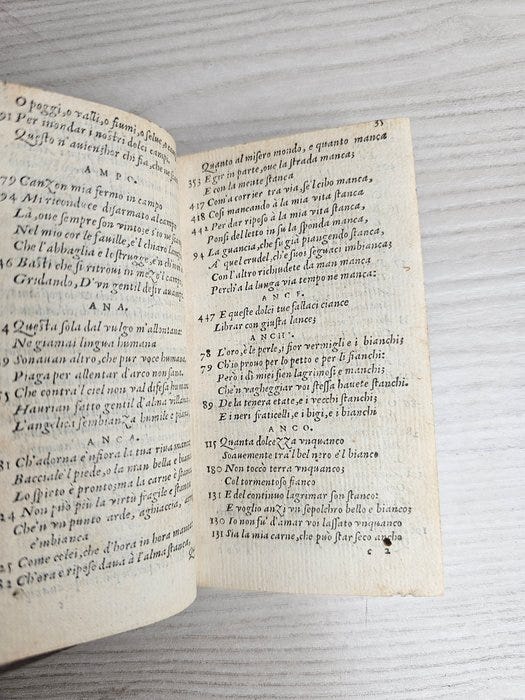 O poggi, o valli, o fiumi, o selue, o
91 Per mondar i nostri dolci campi
Questo n'auien, hor chi fia, che
AMPO.
79 Canzon mia fermo in campo
94 Mi riconduce disarmato al campo
Là, oue sempre son vinto; e s'io
Nel mio cor le fauille, e'l chiaro lampo
Che l'abbaglia e lo strugge, e'n
46 Basti che si ritroui in mezo'l campo
Gridando, D'vn gentil desir
ANA.
4 Questa sola dal vulgo m'allontana:
Ne giamai lingua humana
Sonauan altro, che pur voce humana.
Piaga per allentar d'arco non sana.
Che contra'l ciel non val difesa humana.
Haurian fatto gentil d'alma villana
L'angelica sembianza humile e piana
ANCA.
81 Ch'adorna e'nfiora la tua riua manca:
Bacciale'l piede, o la man bella e bianca
Lo spirto è pronto; ma la carne è stanca
Non può più la virtù fragile e stanca
Che'n vn punto arde, agghiaccia,
e'mbianca
25 Come colei, che d'hora in hora manca:
Ch'ora e riposo daua à l'alma stanca,
33
Quanto al misero mondo, e quanto manca
353 E gir in parte, oue la strada manca;
E con la mente stanca
417 Com'a corrier tra via, se'l cibo manca,
418 Così mancando à la mia vita stanca
442 Per dar riposo à la mia vita stanca,
Ponsi del letto in su la sponda manca,
94 La guancia, che fu già piangendo stanca,
A' quel crudel, ch'e suoi seguaci imbianca;
Con l'altro richiudete da man manca
Perch'a la luuga via tempo ne manca:
ANCE.
447 E queste dolci tue fallaci ciance
Librar con giusta lance;
ANCHI.
78 L'oro, e le perle, i fior vermigli e i bianchi
79 Ch'io prouo per lo petto e per li fianchi:
Però i dì miei fien lagrimosi e manchi:
Che'n vagheggiar voi stessa hauete stanchi.
89 De la tenera etate, e i vecchi stanchi;
E i neri fraticelli, e i bigi, e i bianchi
ANCO.
115 Quanta dolcezza vnquanco
Soauemente tra'l bel nero e'l bianco
180 Non toccò terra vnquanco;
Col tormentoso fianco
131 E del continuo lagrimar son stanco:
E voglio anzi vn sepolchro bello e bianco;
130 Io non fu' d'amar voi lassato vnquanco
131 Sia la mia carne, che può star seco ancho
c 2